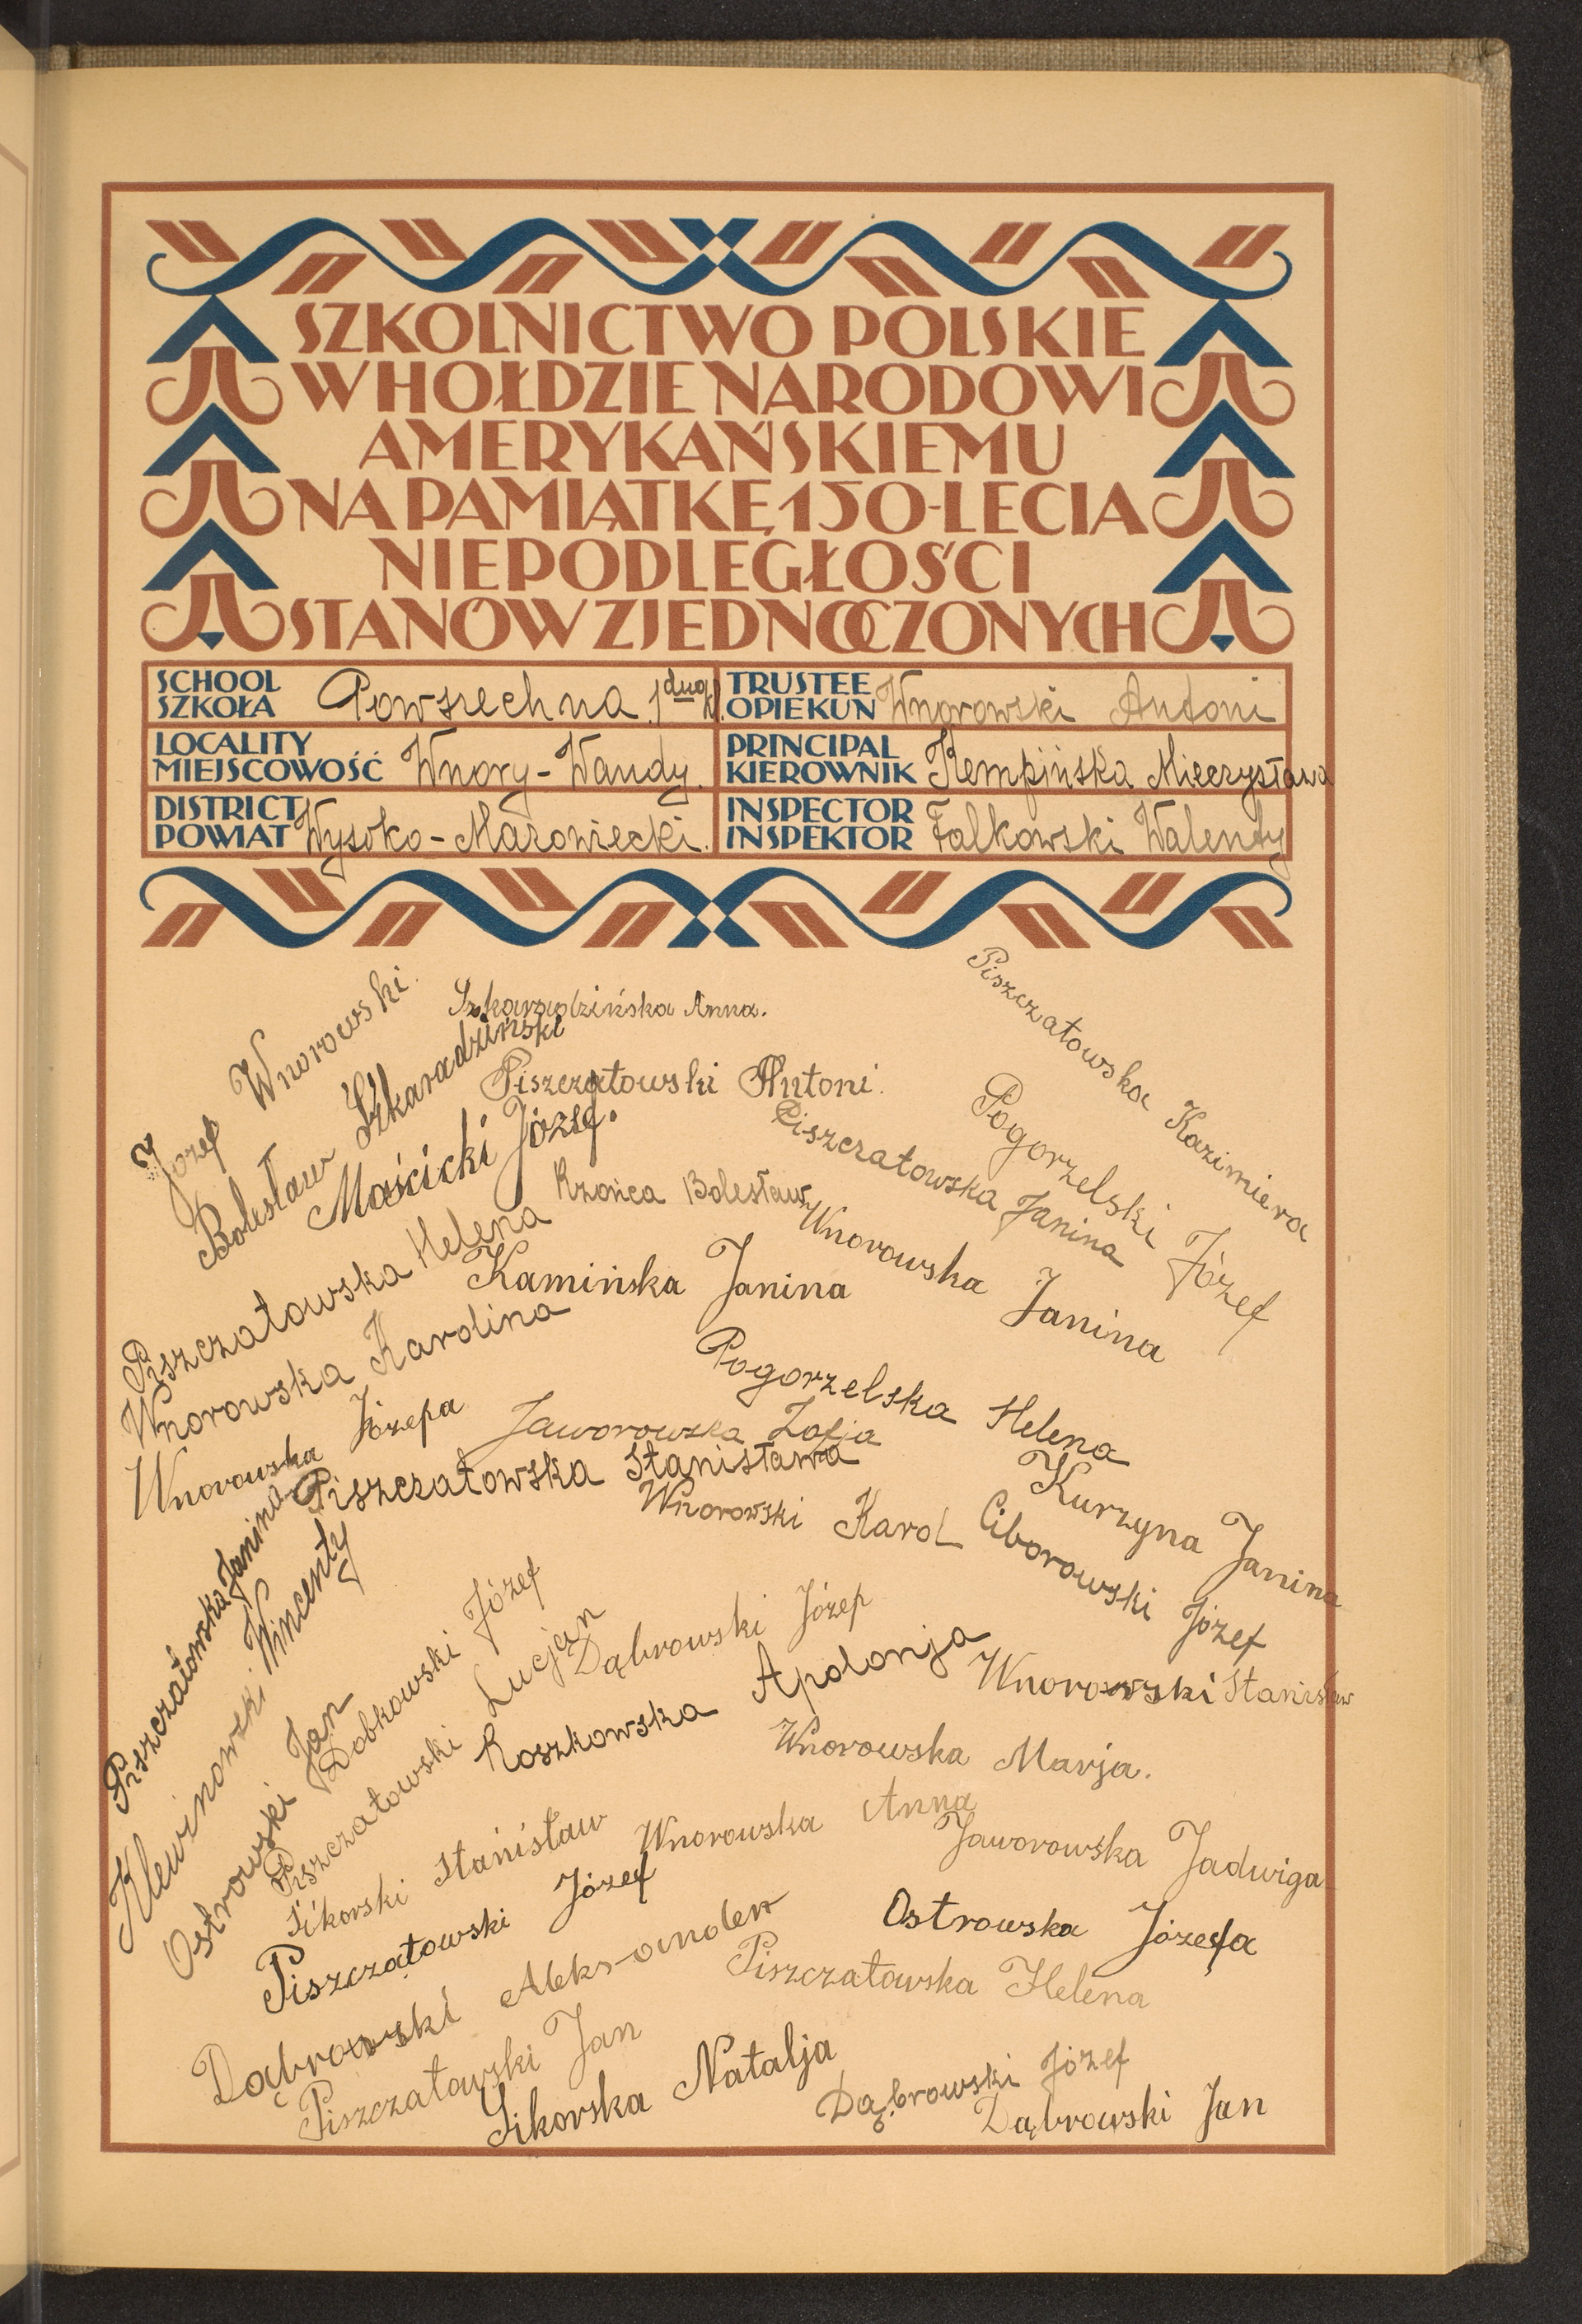 SZKOLNICTWO POLSKIE
W HOŁDZIE NARODOWI
AMERYKAŃSKIEMU
NA PAMIĄTKĘ 150-LECIA
NIEPODLEGŁOŚCI
STANÓW ZJEDNOCZONYCH
SCHOOL
SZKOŁA Powszechna
TRUSTEE
OPIEKUN Wnorowski Antoni
LOCALITY
MIEJSCOWOŚĆ Wnory-Wandy
PRINCIPAL
KIEROWNIK Kempińska Mieczysława
DISTRICT
POWIAT Wysoko-Mazowiecki.
INSPECTOR
INSPEKTOR Falkowski Walenty
Józef Wnorowski.
Szkaradzińska Anna.
Piszczatowska Kazimiera
Bolesław Szkaradziński
Piszczatowski Antoni.
Mościcki Józef.
Piszczatowska Janina
Pogorzelski Józef
Rzońca Bolesław
Piszczatowska Helena
Wnorowska Janina
Kamińska Janina
Wnorowska Karolina
Pogorzelska Helena
Wnorowska Józefa
Jaworowska Zofja
Piszczatowska Stanisława
Kurzyna Janina
Wnorowski Karol
Ciborowski Józef
Piszczatowska Janina
Klewinowski Wincenty
Ostrowski Jan
Dobkowski Józef
Piszczatowski Lucjan
Dąbrowski Józef
Roszkowska Apolonja
Wnorowski Stanisław
Wnorowska Marja.
Sikorski Stanisław
Wnorowska Anna
Jaworowska Jadwiga
Piszczatowski Józef
Ostrowska Józefa
Dąbrowski Aleksander
Piszczatowska Helena
Piszczatowski Jan
Sikorska Natalja
Dąbrowski Józef
Dąbrowski Jan